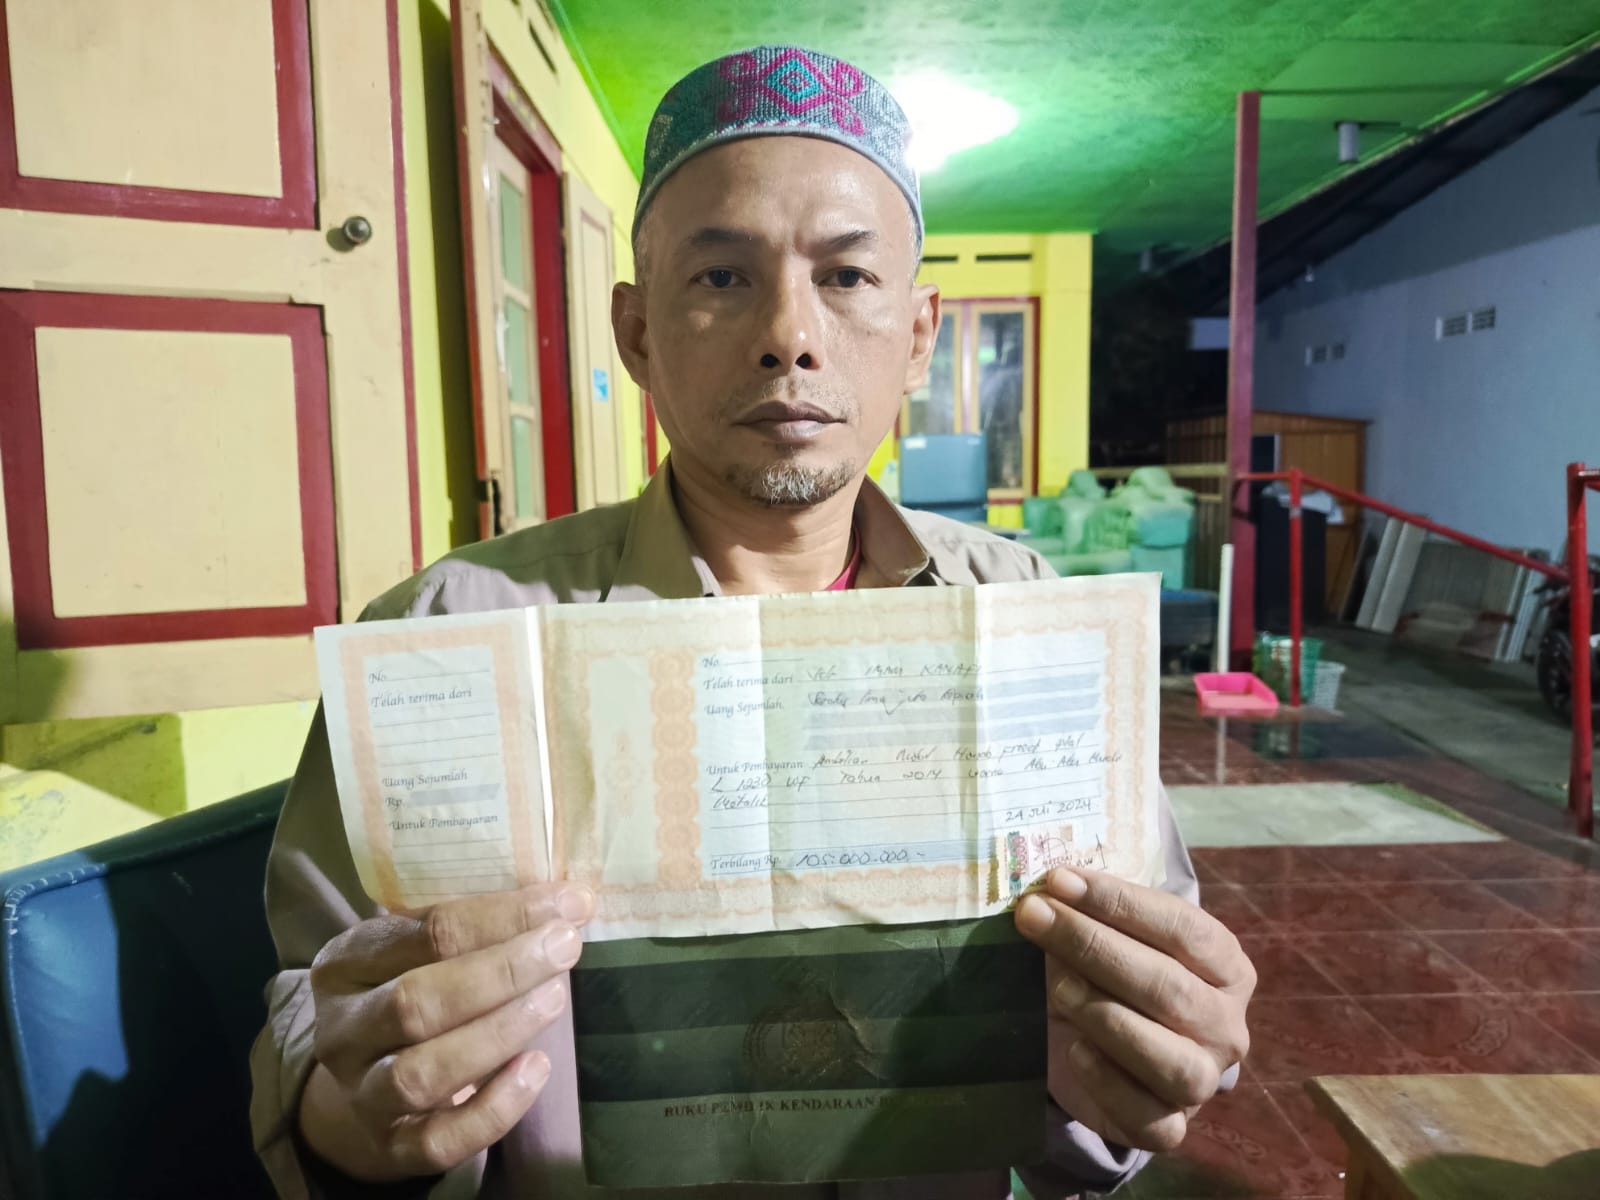 No.
Telah terima dari
Uang Sejumlah
Rp.
Untuk Pembayaran
No.
Telah terima dari IMAM
Uang Sejumlah. lima juta Rupiah
Untuk Pembayaran Mobil
L 1230 WF Tahun 2014 warna Abu-Abu
Metalik
24 Juli 2024
Terbilang Rp. 105.000.000,-
BUKU PEMILIK KENDARAAN BERMOTOR